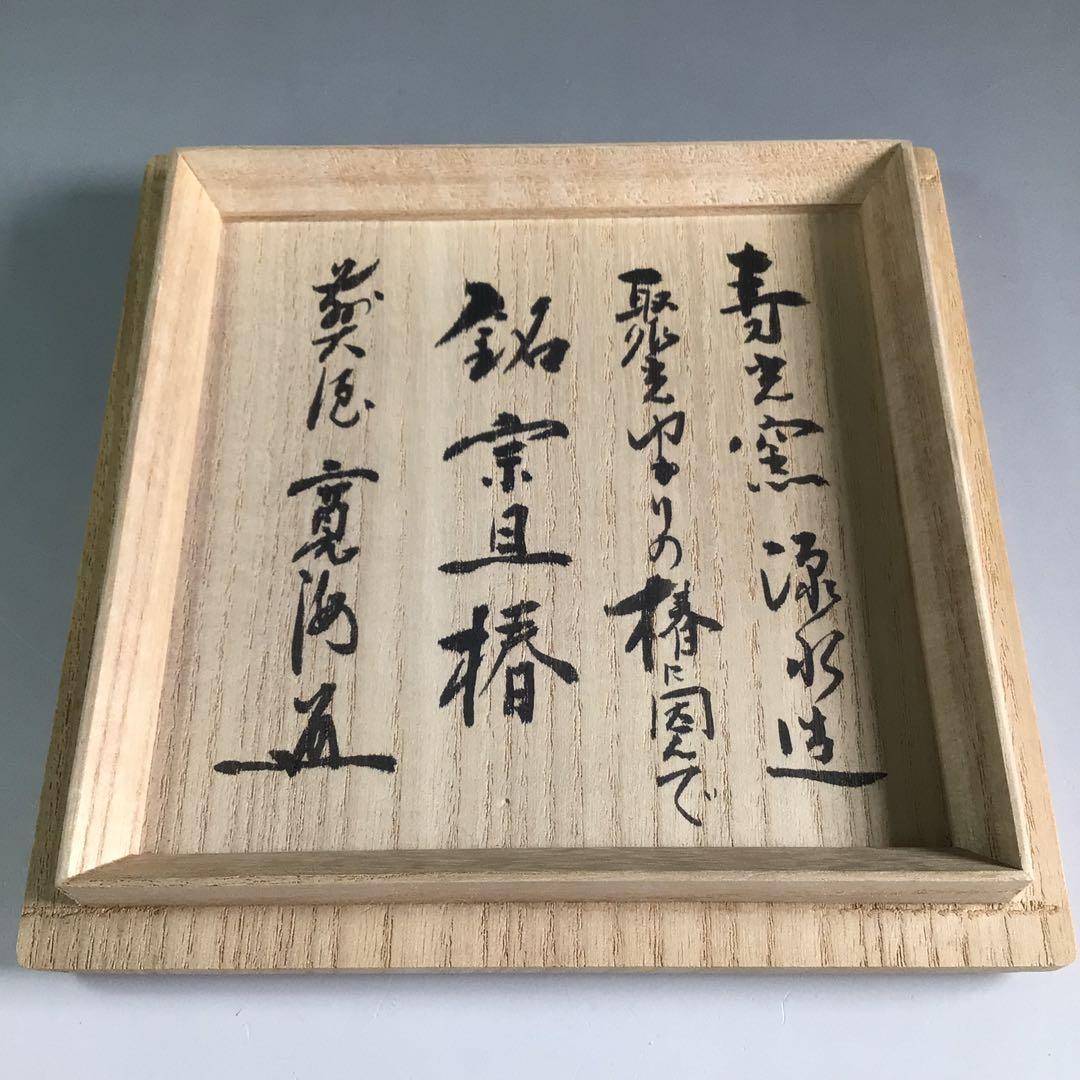 寿光窯 水造
聚光ゆかりの椿に因んで
銘 宗旦椿
前大徳 寛海